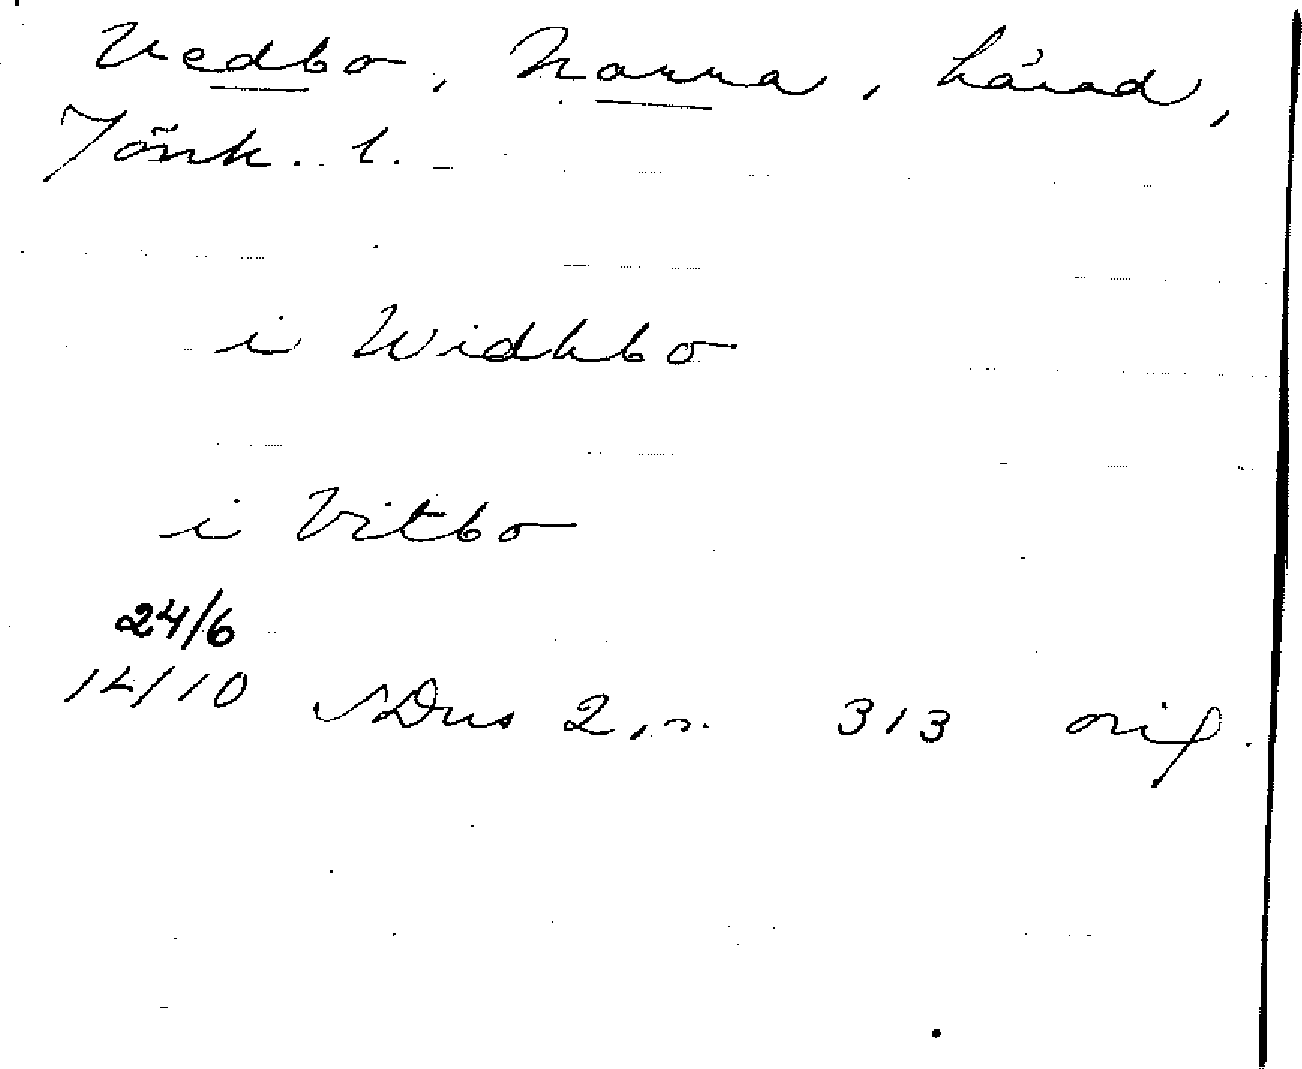 Vedbo, Norra, härad,
Jönk. l.
i Widhbo
i Vitbo
24/6
14/10 SDns 2, s. 313 orig.